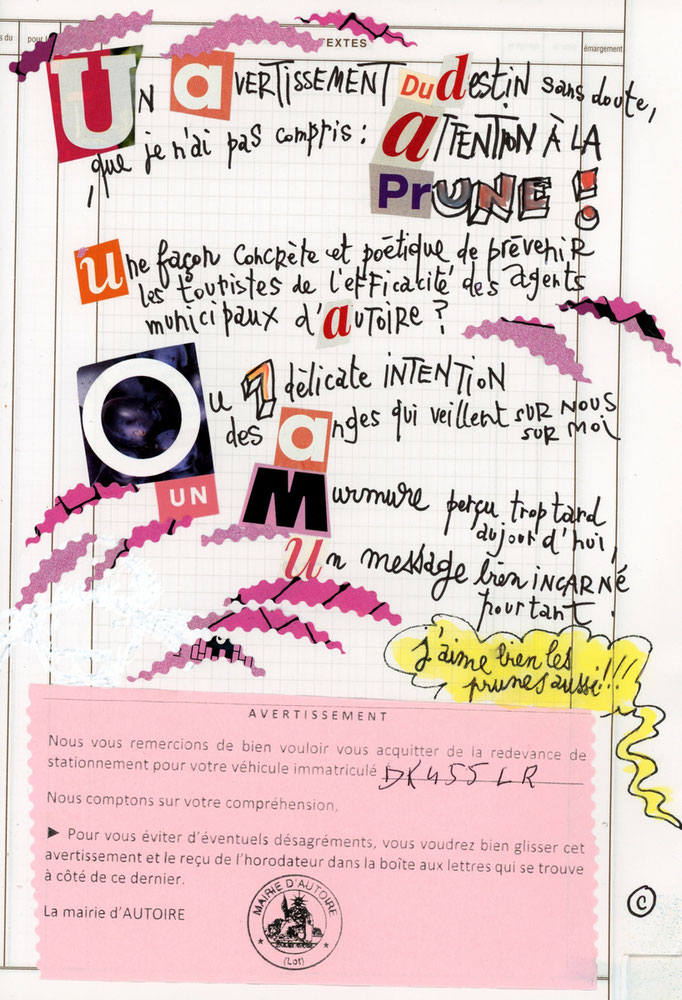 s du
pour l
TEXTES
émargement
Un aVERTISSEMENT Du destin sans doute,
que je n'ai pas compris : aTTENTION À LA
PrUNE !
une façon concrète et poétique de prévenir
les touristes de l'efficacité des agents
municipaux d'autoire ?
Ou 1 délicate INTENTION
des anges qui veillent SUR NOUS
SUR moi
UN Murmure perçu trop tard
aujourd'hui,
un message bien INCARNÉ
pourtant.
j'aime bien les
prunes aussi !!!
AVERTISSEMENT
Nous vous remercions de bien vouloir vous acquitter de la redevance de
stationnement pour votre véhicule immatriculé DK455LR
Nous comptons sur votre compréhension,
► Pour vous éviter d'éventuels désagréments, vous voudrez bien glisser cet
avertissement et le reçu de l'horodateur dans la boîte aux lettres qui se trouve
à côté de ce dernier.
La mairie d'AUTOIRE
MAIRIE D'AUTOIRE
(Lot)
C